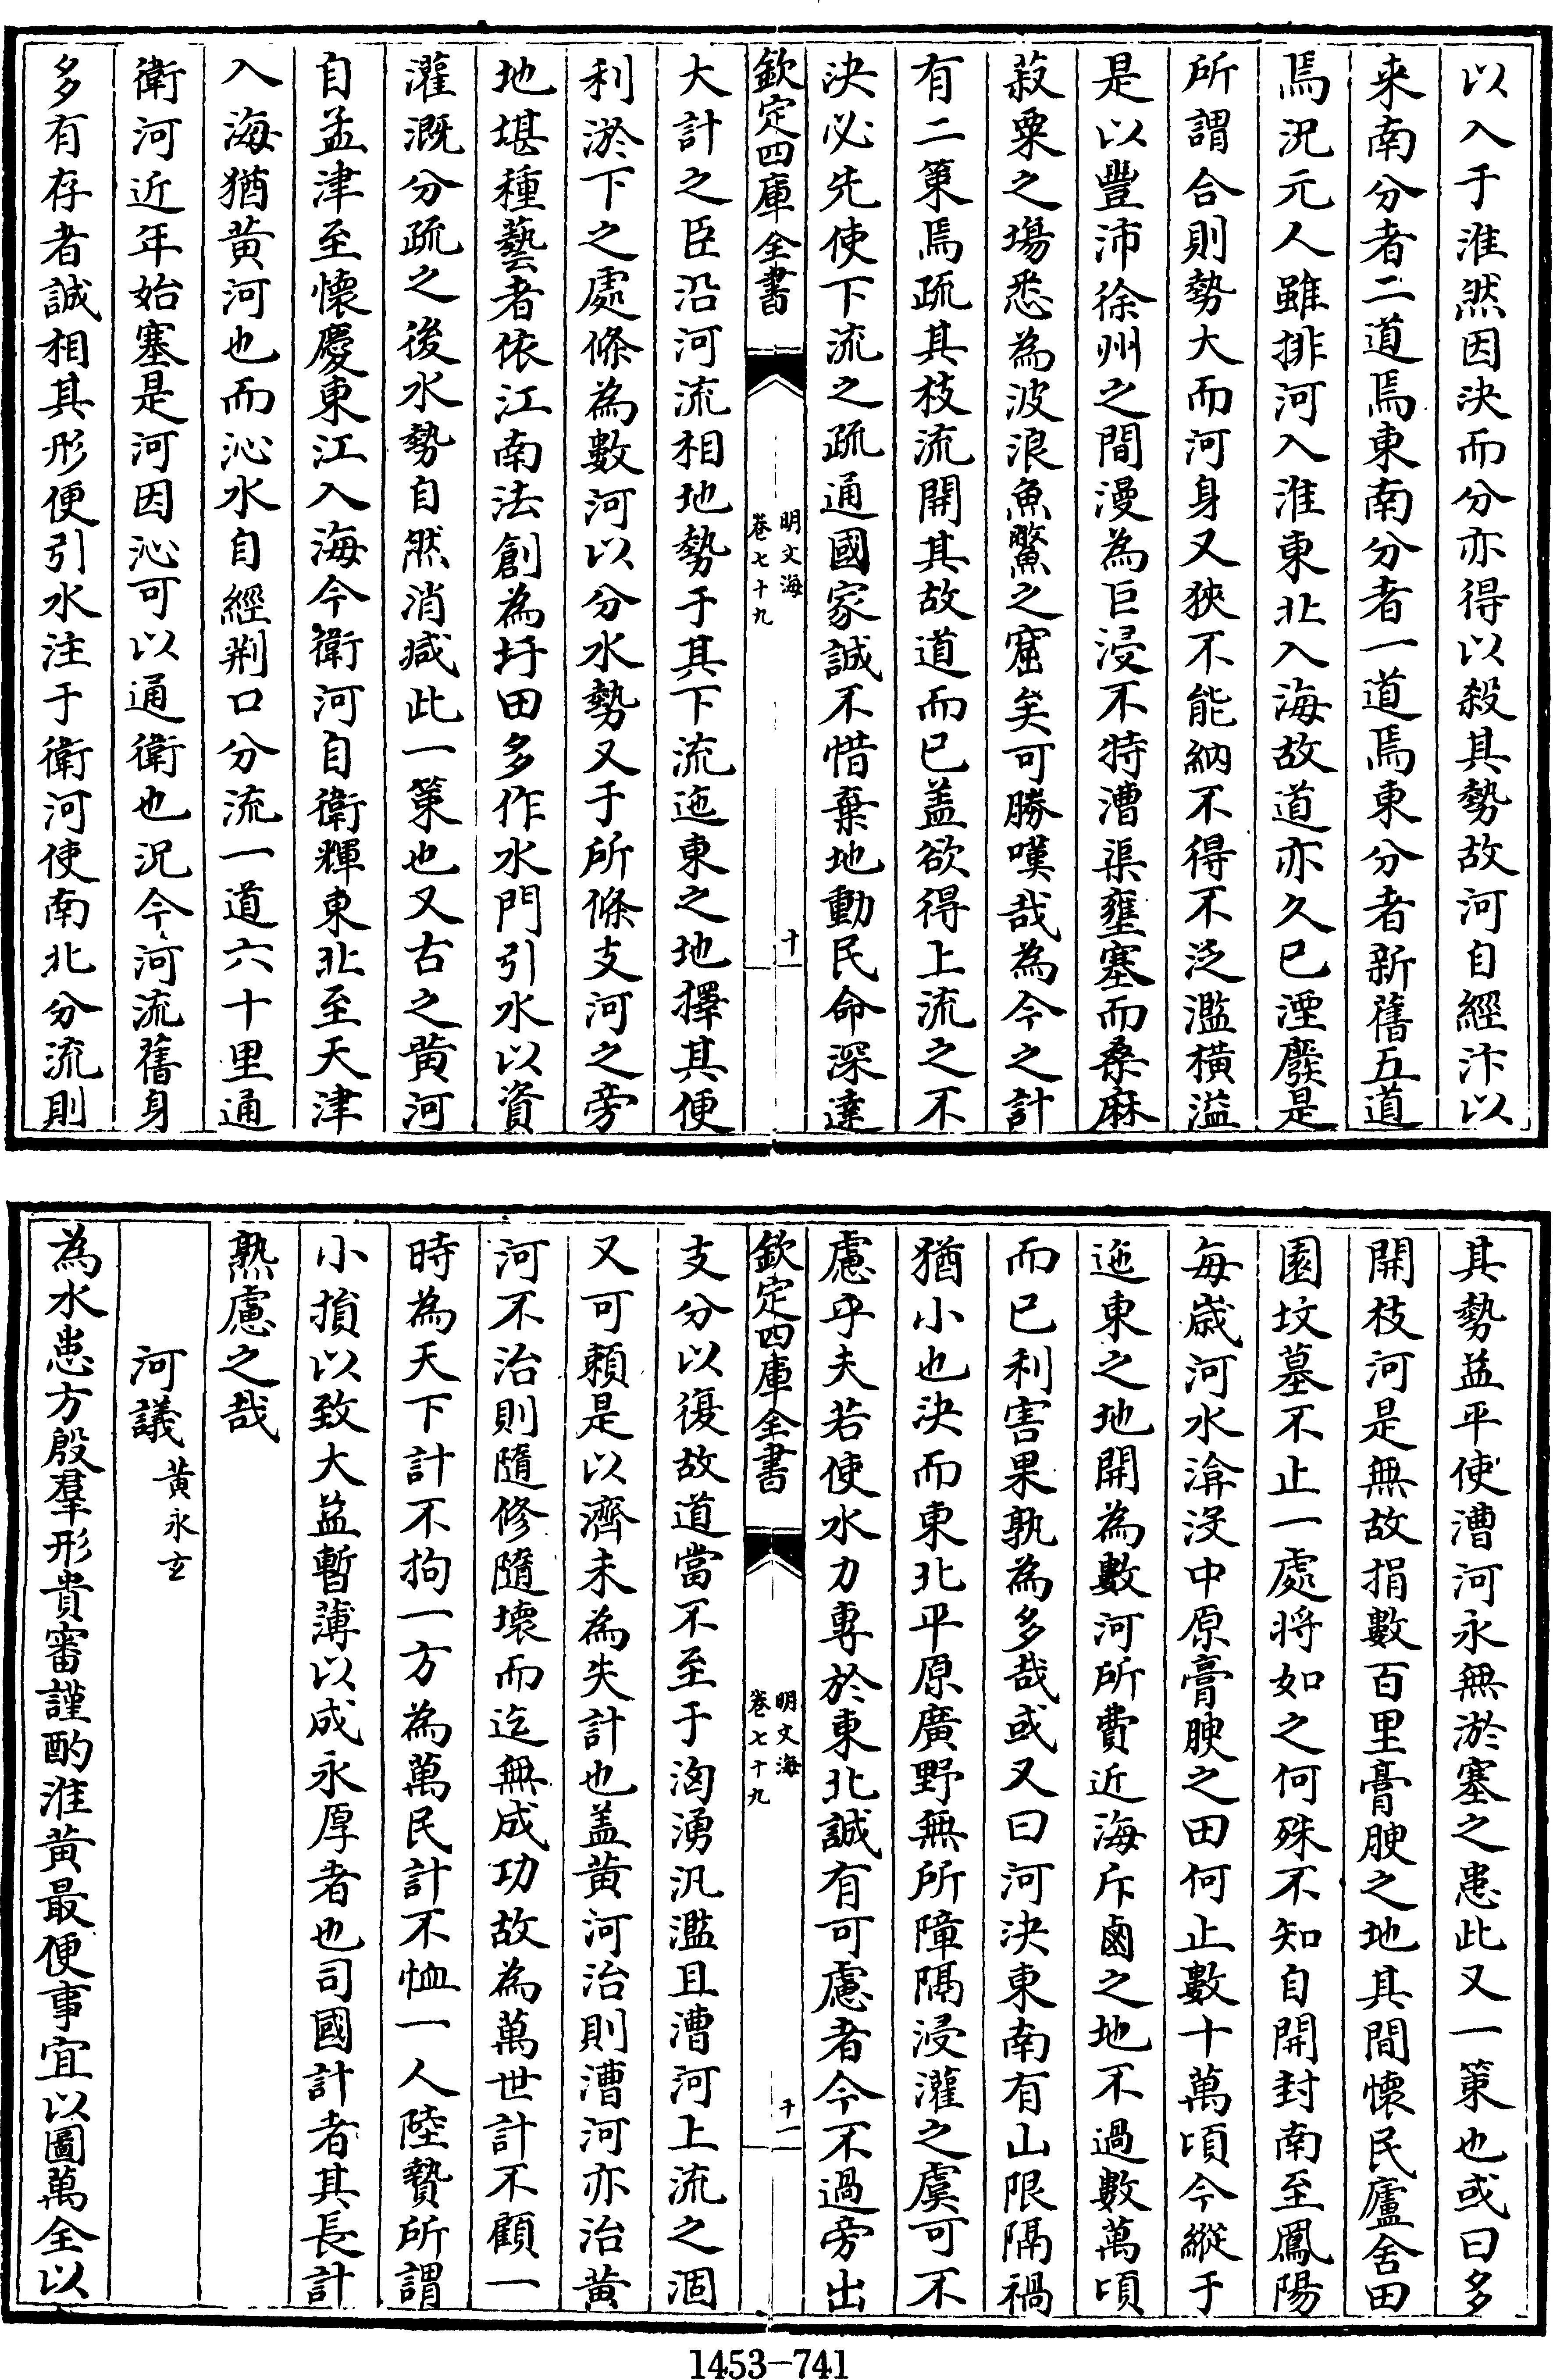 以入于淮然因決而分亦得以殺其勢故河自經汴以
来南分者二道焉東南分者一道焉東分者新舊五道
焉況元人雖排河入淮東北入海故道亦久已湮廢是
所謂合則勢大而河身又狹不能納不得不泛濫橫溢
是以豐沛徐州之間漫為巨浸不特漕渠壅塞而桑麻
菽粟之場悉為波浪魚鱉之窟矣可勝嘆哉為今之計
有二策焉疏其枝流開其故道而已盖欲得上流之不
決必先使下流之疏通國家誠不惜棄地動民命深達
欽定四庫全書
明文海
卷七十九
十
大計之臣沿河流相地勢于其下流迤東之地擇其便
利淤下之處條為數河以分水勢又于所條支河之旁
地堪種藝者依江南法創為圩田多作水門引水以資
灌溉分疏之後水勢自然消减此一策也又古之黄河
自孟津至懷慶東江入海今衛河自衛輝東北至天津
入海猶黄河也而沁水自經荆口分流一道六十里通
衛河近年始塞是河因沁可以通衛也况今河流舊身
多有存者誠相其形便引水注于衛河使南北分流則
其勢益平使漕河永無淤塞之患此又一策也或曰多
開枝河是無故捐數百里膏腴之地其間懷民廬舍田
園坟墓不止一處将如之何殊不知自開封南至鳳陽
每歳河水渰沒中原膏腴之田何止數十萬頃今縱于
迤東之地開為數河所費近海斥鹵之地不過數萬頃
而已利害果孰為多哉或又曰河決東南有山限隔禍
猶小也決而東北平原廣野無所障隔浸灌之虞可不
慮乎夫若使水力專於東北誠有可慮者今不過旁出
欽定四庫全書
明文海
卷七十九
十一
支分以復故道當不至于洶湧汎濫且漕河上流之涸
又可頼是以濟未為失計也盖黄河治則漕河亦治黄
河不治則隨修隨壞而迄無成功故為萬世計不顧一
時為天下計不拘一方為萬民計不恤一人陸贄所謂
小損以致大益暫薄以成永厚者也司國計者其長計
熟慮之哉
河議黄永玄
為水患方殷羣形貴審謹酌淮黄最便事宜以圖萬全以
1453—741